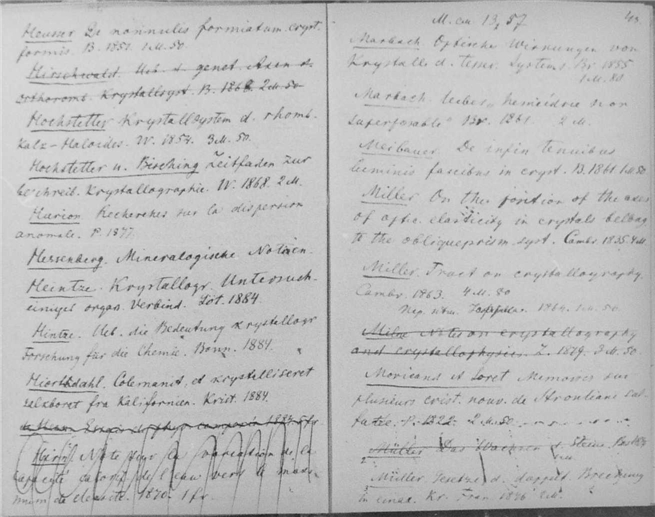 Heusser De nonnulis formiatum cryst.
formis. B. 1851. 1 M. 50
Hirschwald. Ueb. d. genet. Axen d.
orthoromb. Krystallsyst. B. 1868. 2 M. 50
Hochstetter Krystallsystem d. rhomb.
Kalk-Haloides. W. 1854. 3 M. 50.
Hochstetter u. Bisching Leitfaden zur
beschreib. Krystallographie. W. 1868. 2 M.
Hurion Recherches sur la dispersion
anomale. P. 1877.
Hessenberg. Mineralogische Notizen.
Heintze. Krystallogr. Untersuch
organ. Verbind. 1884.
Hintze. Ueb. die Bedeutung Krystallogr
Forschung für die Chemie. Bonn. 1884.
Hiortdahl. Colemanit, et krystalliseret
kalkboret fra Kalifornien. Krist. 1884.
Note sur la variation de la
capacité de l'eau vers le maxi-
mum de densité. 1870. 1 fr.
M. cm 13,57
Marbach. Optische Wirkungen von
Krystalle d. tesser. Systems. Br. 1855
1 M. 80
Marbach. Ueber hemiedrie
superposable Br. 1861. 2 M.
De infin tenuibus
luminis fascibus in cryst. B. 1861. 1 M. 50
Miller On the position of the axes
of optic elasticity in crystals belong
to the oblique prism. syst. Cambr. 1835. 4 M.
Miller. Tract on crystallography.
Cambr. 1863. 4 M. 80
1864. 1 M. 50
Milne Notes on crystallography
and crystallophysics. L. 1879. 3 M. 50
Moricand et Soret Memoires sur
plusieurs crist. nouv. de Strontiane sul-
fatée. P. 1822. 2 M. 50.
Müller Das Wachsen d. Steine.
Müller. Gesetze d. doppelt Brechung